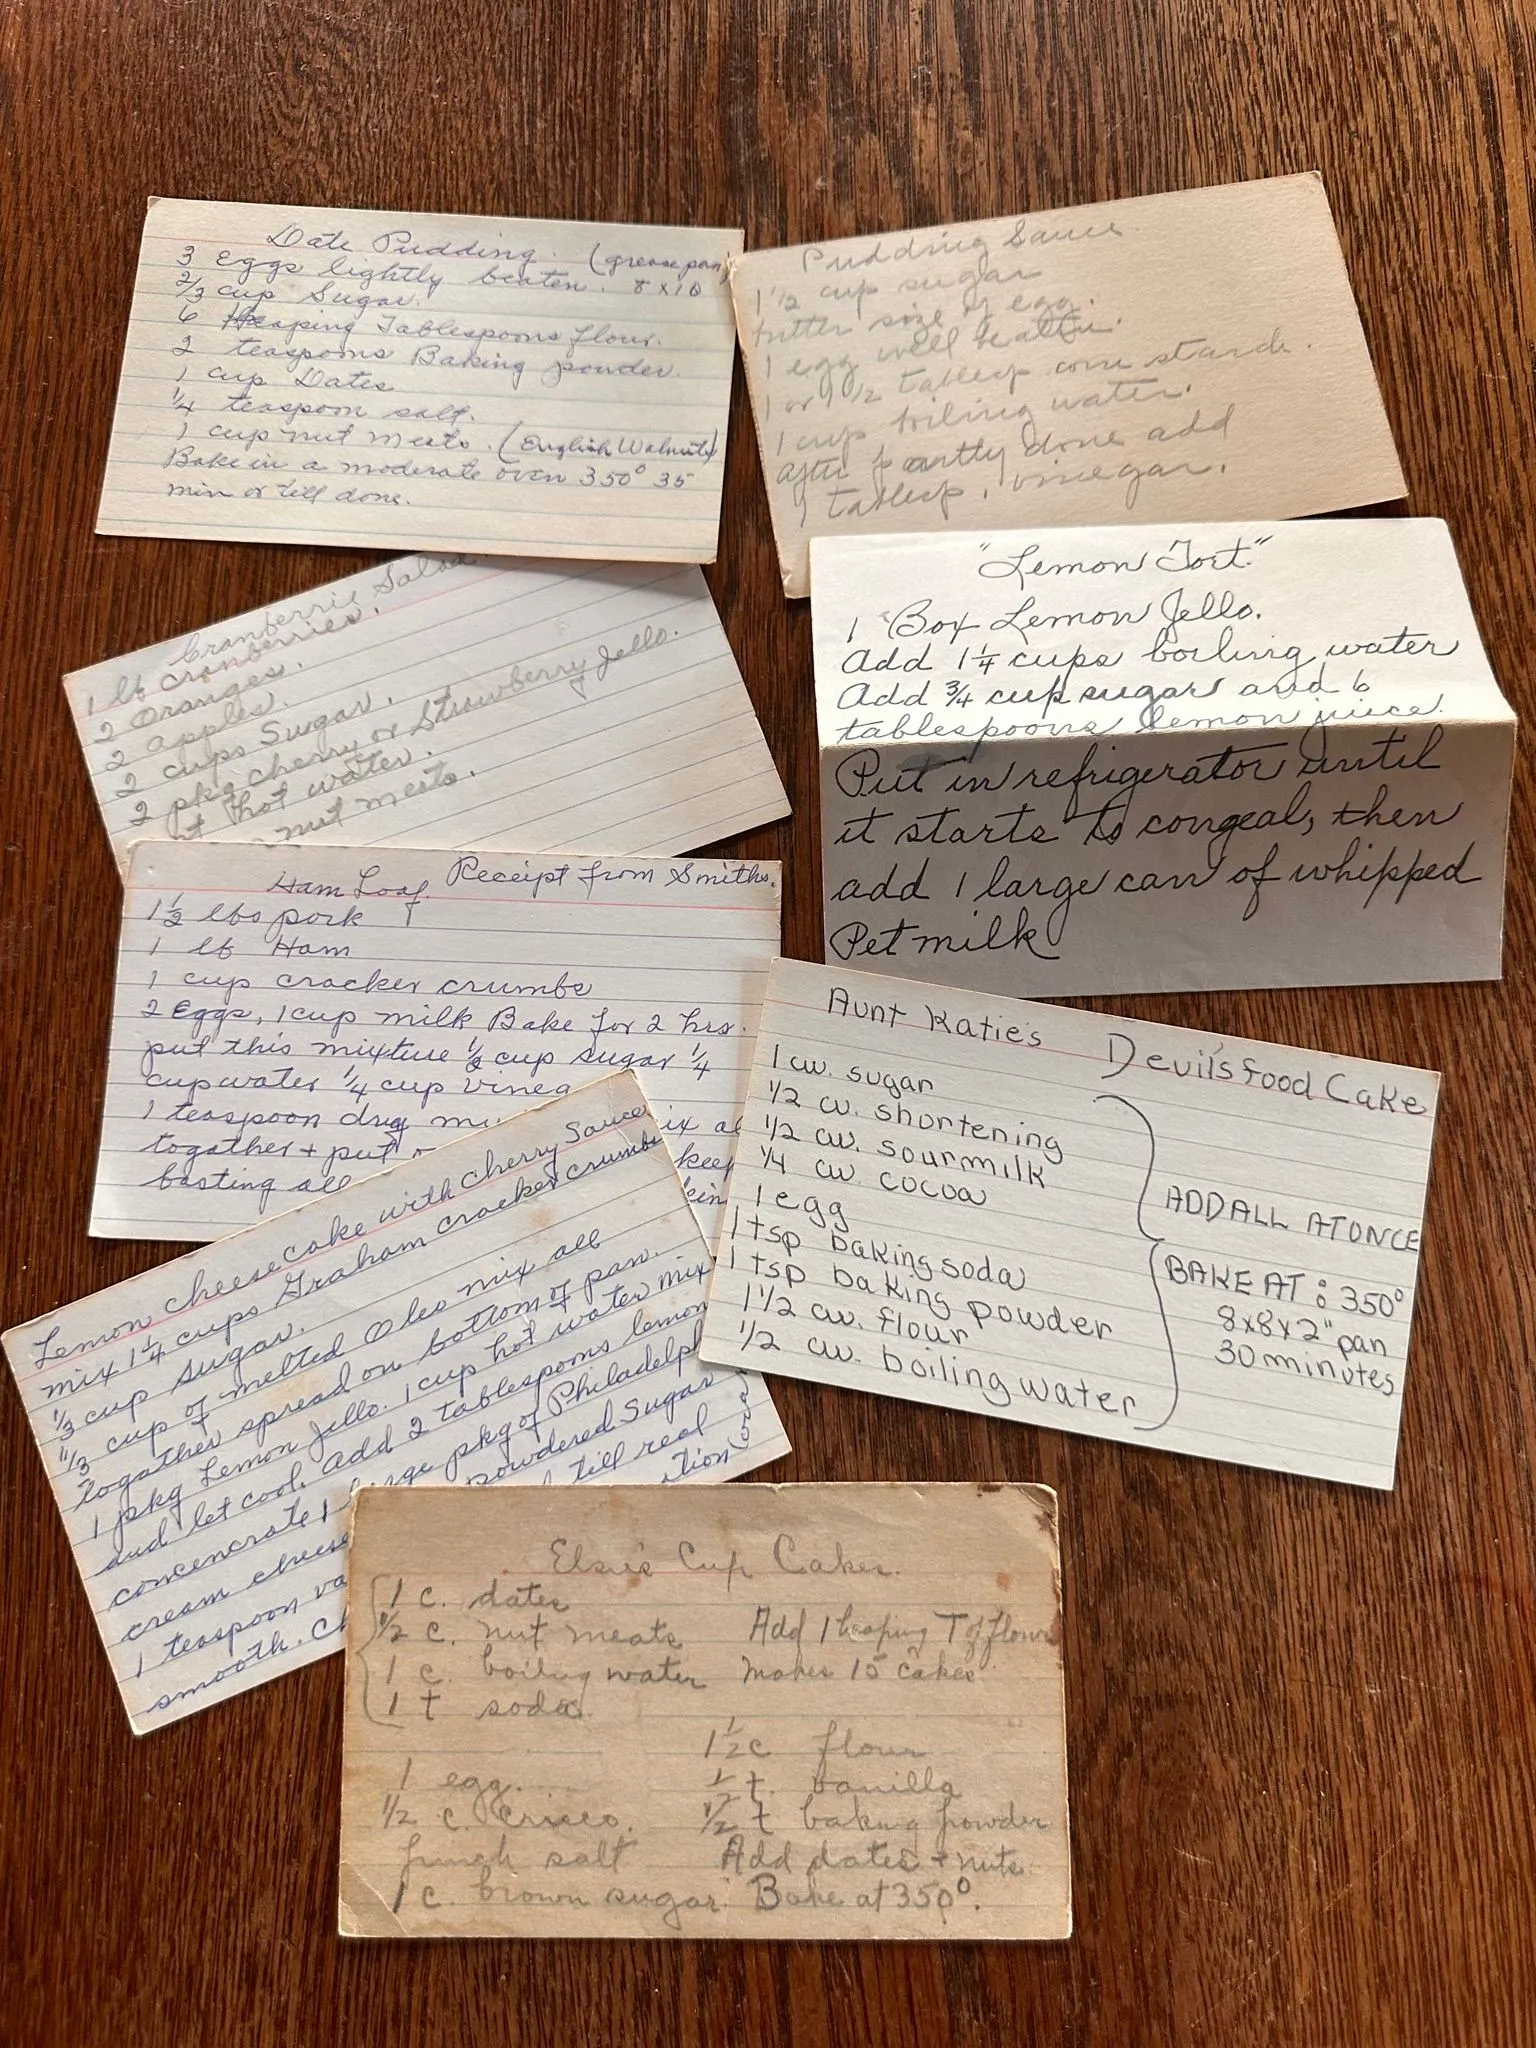 Date Pudding. (grease pan)
3 Eggs lightly beaten. 8 x 10
2/3 cup Sugar.
6 Heaping Tablespoons flour.
2 teaspoons Baking powder.
1 cup Dates
1/4 teaspoon salt.
1 cup nut meats. (English Walnuts)
Bake in a moderate oven 350° 35
min or till done.
Pudding Sauce
1 1/2 cup sugar
butter size of egg.
1 egg well beaten.
1 or 1 1/2 tablesp corn starch.
1 cup boiling water.
after partly done add
1 tablesp. vinegar.
Cranberrie Salad
1 lb cranberries.
2 oranges.
2 apples.
2 cups Sugar.
2 pkg cherry or Strawberry Jello.
hot water.
nut meats.
"Lemon Tort."
1 Box Lemon Jello.
Add 1 1/4 cups boiling water
Add 3/4 cup sugar and 6
tablespoons lemon juice.
Put in refrigerator until
it starts to congeal, then
add 1 large can of whipped
Pet milk
Ham Loaf. Receipt from Smiths.
1 1/2 lbs pork
1 lb Ham
1 cup cracker crumbs
2 Eggs, 1 cup milk Bake for 2 hrs.
put this mixture 1/2 cup sugar 1/4
cup water 1/4 cup vineg
1 teaspoon dry mu ix al
together + put o keep
basting all kin
Aunt Katie's Devil's Food Cake
1 cu. sugar
1/2 cu. shortening
1/2 cu. sour milk
1/4 cu. cocoa
1 egg
1 tsp baking soda
1 tsp baking powder
1 1/2 cu. flour
1/2 cu. boiling water
ADD ALL AT ONCE
BAKE AT: 350°
8x8x2" pan
30 minutes
Lemon cheese cake with cherry Sauce
mix 1 1/4 cups Graham cracker crumbs
1/3 cup sugar.
1/3 cup of melted Oleo mix all
together spread on bottom of pan.
1 pkg Lemon Jello. 1 cup hot water mix
and let cool. Add 2 tablespoons lemon
concentrate 1 large pkg of Philadelph
cream cheese powdered Sugar
1 teaspoon va till real
smooth. Ch ation
Elsie's Cup Cakes.
1 c. dates
1/2 c. nut meats Add 1 heaping T of flour
1 c. boiling water makes 15 cakes
1 t soda.
1 1/2 c flour
1 egg. 1/2 t. vanilla
1/2 c. crisco. 1/2 t baking powder
pinch salt Add dates + nuts
1 c. brown sugar. Bake at 350°.